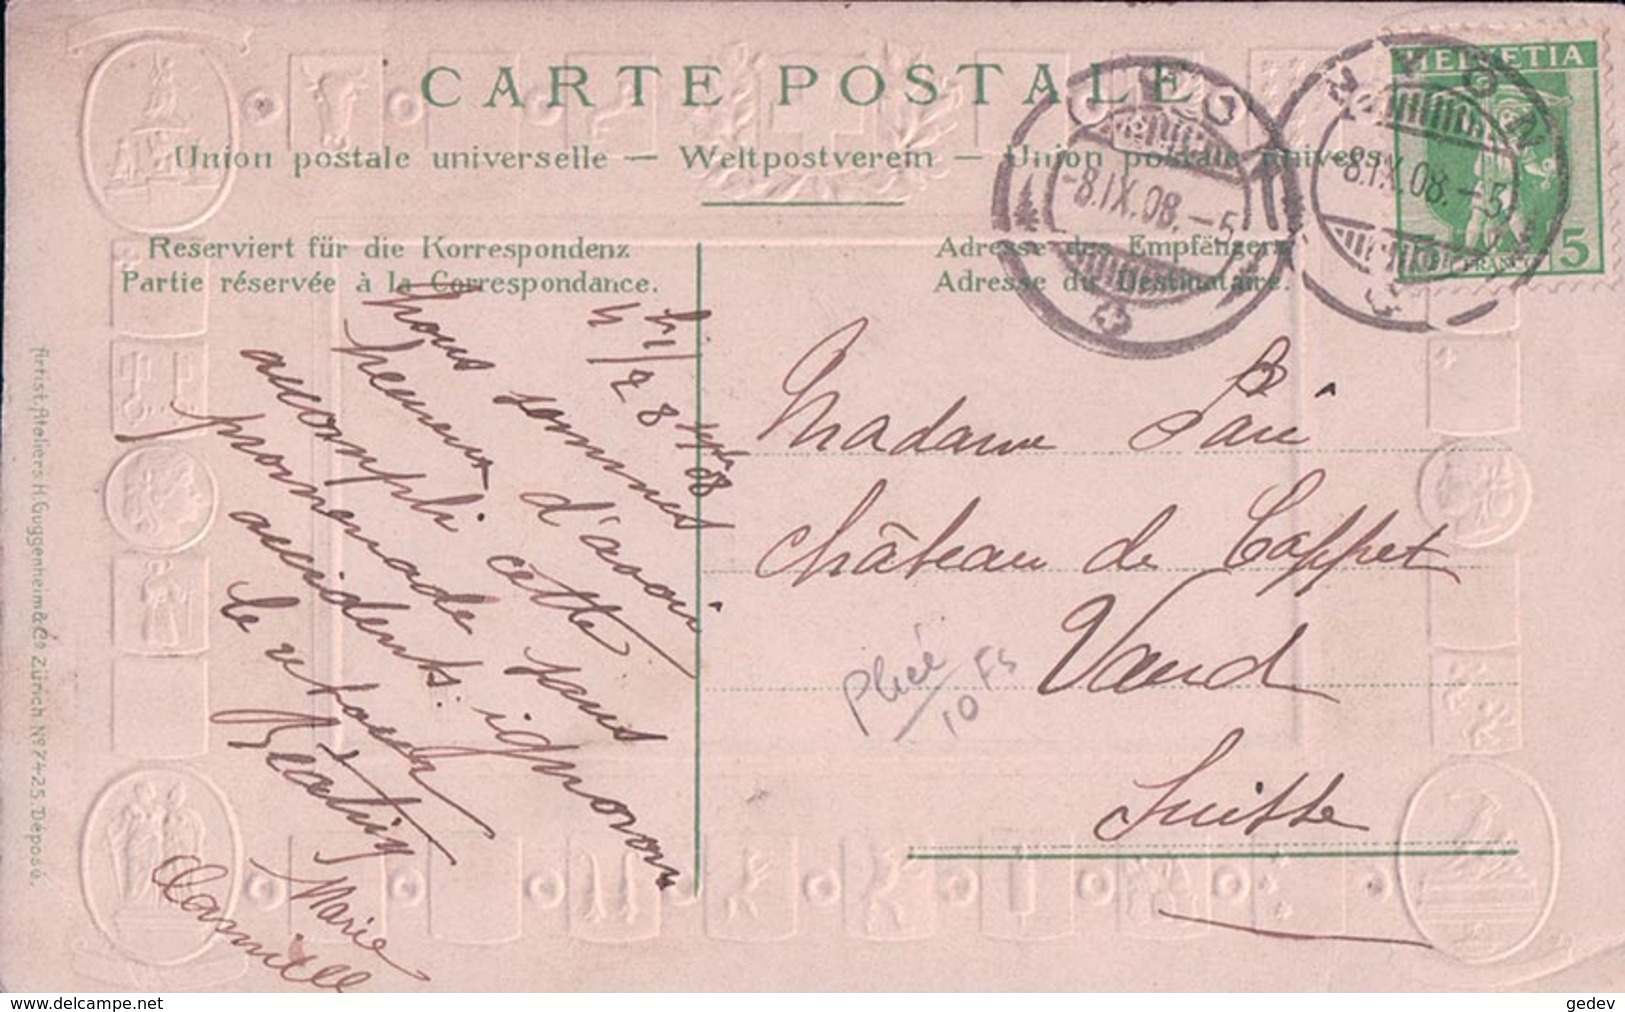 CARTE POSTALE
Union postale universelle — Weltpostverein — Union postale univers
Reserviert für die Korrespondenz
Partie réservée à la Correspondance.
Adresse des Empfängers
Adresse du Destinataire.
HELVETIA
5
FRANCO
NYON
-8.IX.08.-5
NYON
-8.IX.08.-5
8 08
Nous sommes
heureux d'avoir
accompli cette
promenade sans
accidents. ignorons
le
Marie
Camille
Madame
Château de Coppet
Vaud
Suisse
10 Fs
Artist. Ateliers H. Guggenheim & Co Zürich No 7425. Déposé.
www.delcampe.net
gedev